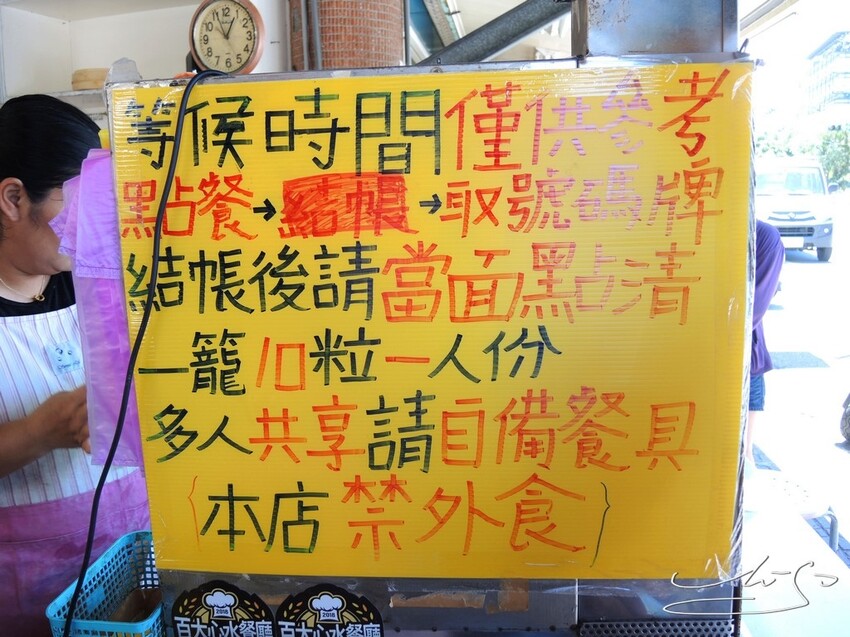 等候時間僅供參考
點餐→結帳→取號碼牌
結帳後請當面點清
一籠10粒一人份
多人共享請自備餐具
(本店禁外食)
2018
百大心水餐廳
2018
百大心水餐廳